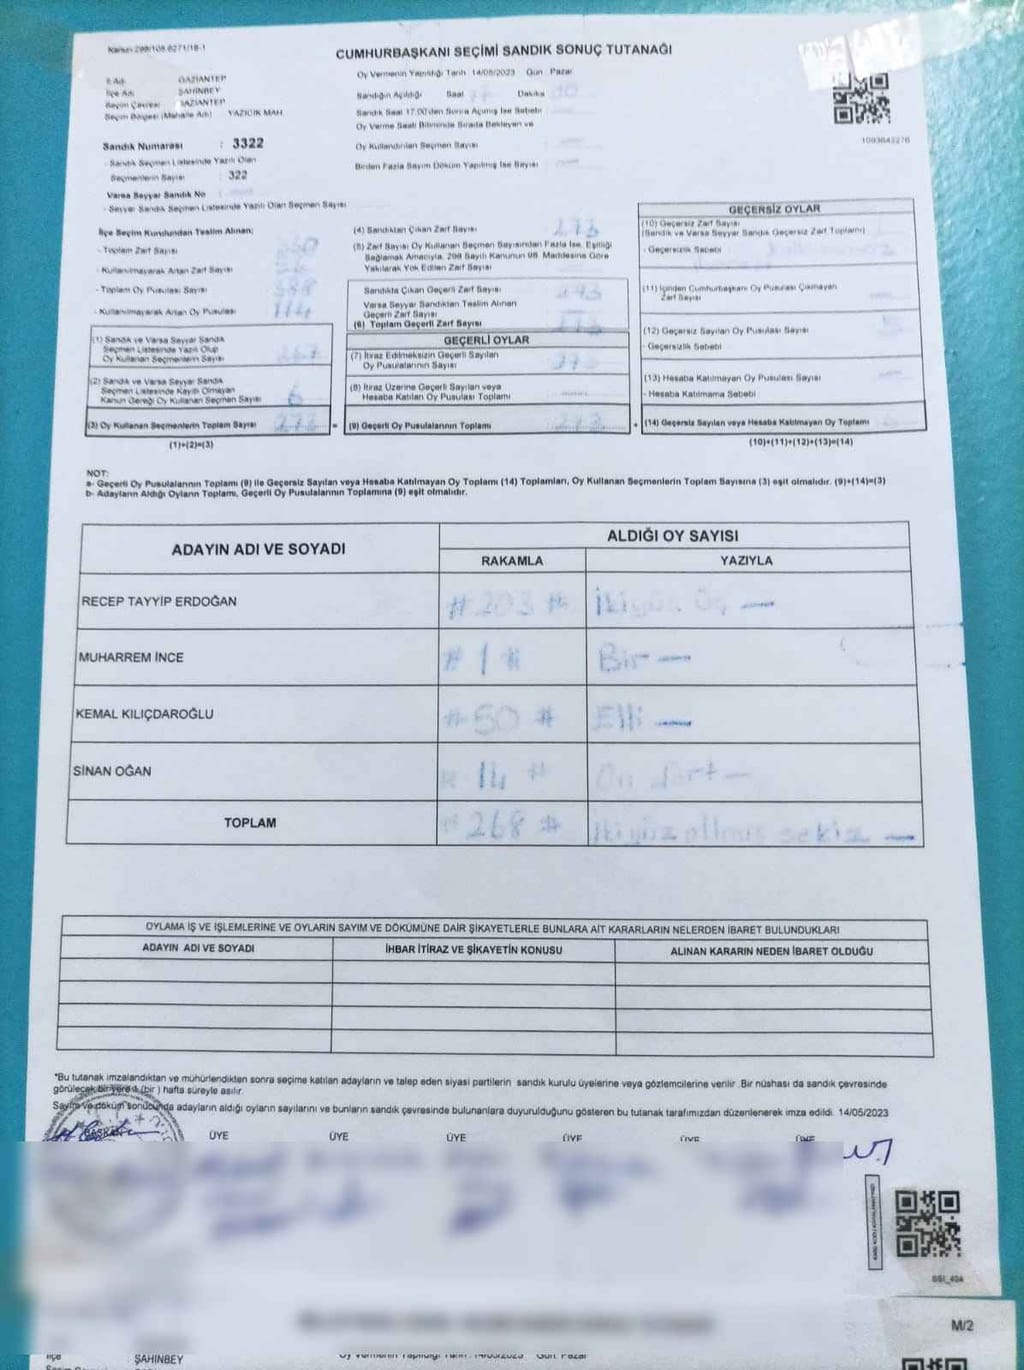 Kanun 298/105.6271/18-1
CUMHURBAŞKANI SEÇİMİ SANDIK SONUÇ TUTANAĞI
İl Adı GAZİANTEP
İlçe Adı ŞAHİNBEY
Seçim Çevresi GAZİANTEP
Seçim Bölgesi (Mahalle Adı) YAZICIK MAH
Sandık Numarası : 3322
- Sandık Seçmen Listesinde Yazılı Olan
Seçmenlerin Sayısı : 322
Varsa Seyyar Sandık No
- Seyyar Sandık Seçmen Listesinde Yazılı Olan Seçmen Sayısı
Oy Vermenin Yapıldığı Tarih 14/05/2023 Gün Pazar
Sandığın Açıldığı Saat Dakika
Sandık Saat 17.00'den Sonra Açılmış İse Sebebi
Oy Verme Saati Bitiminde Sırada Bekleyen ve
Oy Kullandırılan Seçmen Sayısı
Birden Fazla Sayım Döküm Yapılmış İse Sayısı
1093642276
İlçe Seçim Kurulundan Teslim Alınan;
- Toplam Zarf Sayısı
- Kullanılmayarak Artan Zarf Sayısı
- Toplam Oy Pusulası Sayısı
- Kullanılmayarak Artan Oy Pusulası 114
(1) Sandık ve Varsa Seyyar Sandık
Seçmen Listesinde Yazılı Olup
Oy Kullanan Seçmenlerin Sayısı 267
(2) Sandık ve Varsa Seyyar Sandık
Seçmen Listesinde Kayıtlı Olmayan
Kanun Gereği Oy Kullanan Seçmen Sayısı 6
(3) Oy Kullanan Seçmenlerin Toplam Sayısı 273
(1)+(2)=(3)
(4) Sandıktan Çıkan Zarf Sayısı 273
(5) Zarf Sayısı Oy Kullanan Seçmen Sayısından Fazla İse, Eşitliği
Sağlamak Amacıyla, 298 Sayılı Kanunun 98. Maddesine Göre
Yakılarak Yok Edilen Zarf Sayısı
Sandıkta Çıkan Geçerli Zarf Sayısı
Varsa Seyyar Sandıktan Teslim Alınan
Geçerli Zarf Sayısı
(6) Toplam Geçerli Zarf Sayısı
GEÇERLİ OYLAR
(7) İtiraz Edilmeksizin Geçerli Sayılan
Oy Pusulalarının Sayısı
(8) İtiraz Üzerine Geçerli Sayılan veya
Hesaba Katılan Oy Pusulası Toplamı
(9) Geçerli Oy Pusulalarının Toplamı
GEÇERSİZ OYLAR
(10) Geçersiz Zarf Sayısı
(Sandık ve Varsa Seyyar Sandık Geçersiz Zarf Toplamı)
- Geçersizlik Sebebi
(11) İçinden Cumhurbaşkanı Oy Pusulası Çıkmayan
Zarf Sayısı
(12) Geçersiz Sayılan Oy Pusulası Sayısı
- Geçersizlik Sebebi
(13) Hesaba Katılmayan Oy Pusulası Sayısı
- Hesaba Katılmama Sebebi
(14) Geçersiz Sayılan veya Hesaba Katılmayan Oy Toplamı
(10)+(11)+(12)+(13)=(14)
NOT:
a- Geçerli Oy Pusulalarının Toplamı (9) ile Geçersiz Sayılan veya Hesaba Katılmayan Oy Toplamı (14) Toplamları, Oy Kullanan Seçmenlerin Toplam Sayısına (3) eşit olmalıdır. (9)+(14)=(3)
b- Adayların Aldığı Oyların Toplamı, Geçerli Oy Pusulalarının Toplamına (9) eşit olmalıdır.
ADAYIN ADI VE SOYADI ALDIĞI OY SAYISI
RAKAMLA YAZIYLA
RECEP TAYYİP ERDOĞAN # 203 # İkiyüz üç —
MUHARREM İNCE # 1 # Bir —
KEMAL KILIÇDAROĞLU # 50 # Elli —
SİNAN OĞAN # 14 # On dört —
TOPLAM # 268 # İkiyüz altmış sekiz —
OYLAMA İŞ VE İŞLEMLERİNE VE OYLARIN SAYIM VE DÖKÜMÜNE DAİR ŞİKAYETLERLE BUNLARA AİT KARARLARIN NELERDEN İBARET BULUNDUKLARI
ADAYIN ADI VE SOYADI İHBAR İTİRAZ VE ŞİKAYETİN KONUSU ALINAN KARARIN NEDEN İBARET OLDUĞU
*Bu tutanak imzalandıktan ve mühürlendikten sonra seçime katılan adayların ve talep eden siyasi partilerin sandık kurulu üyelerine veya gözlemcilerine verilir. Bir nüshası da sandık çevresinde
görülecek bir yere 1 (bir ) hafta süreyle asılır.
Sayım ve döküm sonucunda adayların aldığı oyların sayılarını ve bunların sandık çevresinde bulunanlara duyurulduğunu gösteren bu tutanak tarafımızdan düzenlenerek imza edildi. 14/05/2023
BAŞKAN ÜYE ÜYE ÜYE ÜYE ÜYE ÜYE
M/2
İlçe ŞAHİNBEY
Oy Vermenin Yapıldığı Tarih : 14/05/2023 Gün: Pazar